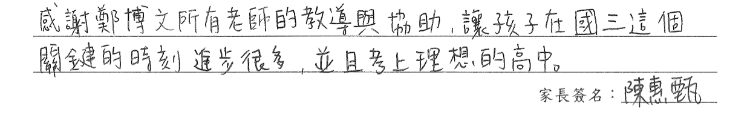 感謝鄭博文所有老師的教導與協助，讓孩子在國三這個
關鍵的時刻進步很多，並且考上理想的高中。
家長簽名：陳惠甄